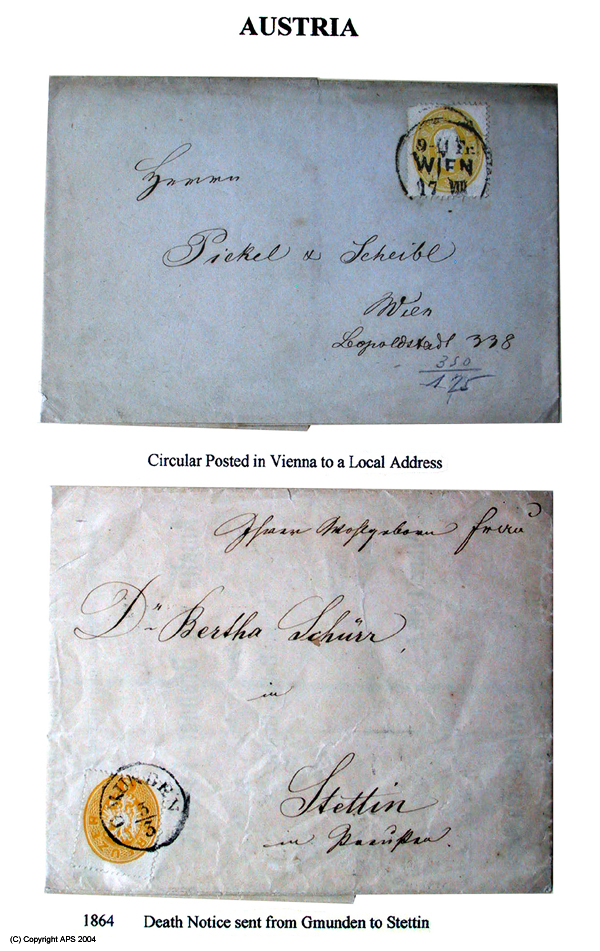 AUSTRIA
9-11 Fr.
WIEN
17 VIII
Herrn
Pickel & Scheibl
Wien
Leopoldstadt 338
350
175
Circular Posted in Vienna to a Local Address
Ihrer Wohlgeborn Frau
Dr Bertha Schürr
in
Stettin
in Preußen.
GMUNDEN
5/3
1864 Death Notice sent from Gmunden to Stettin
(C) Copyright APS 2004